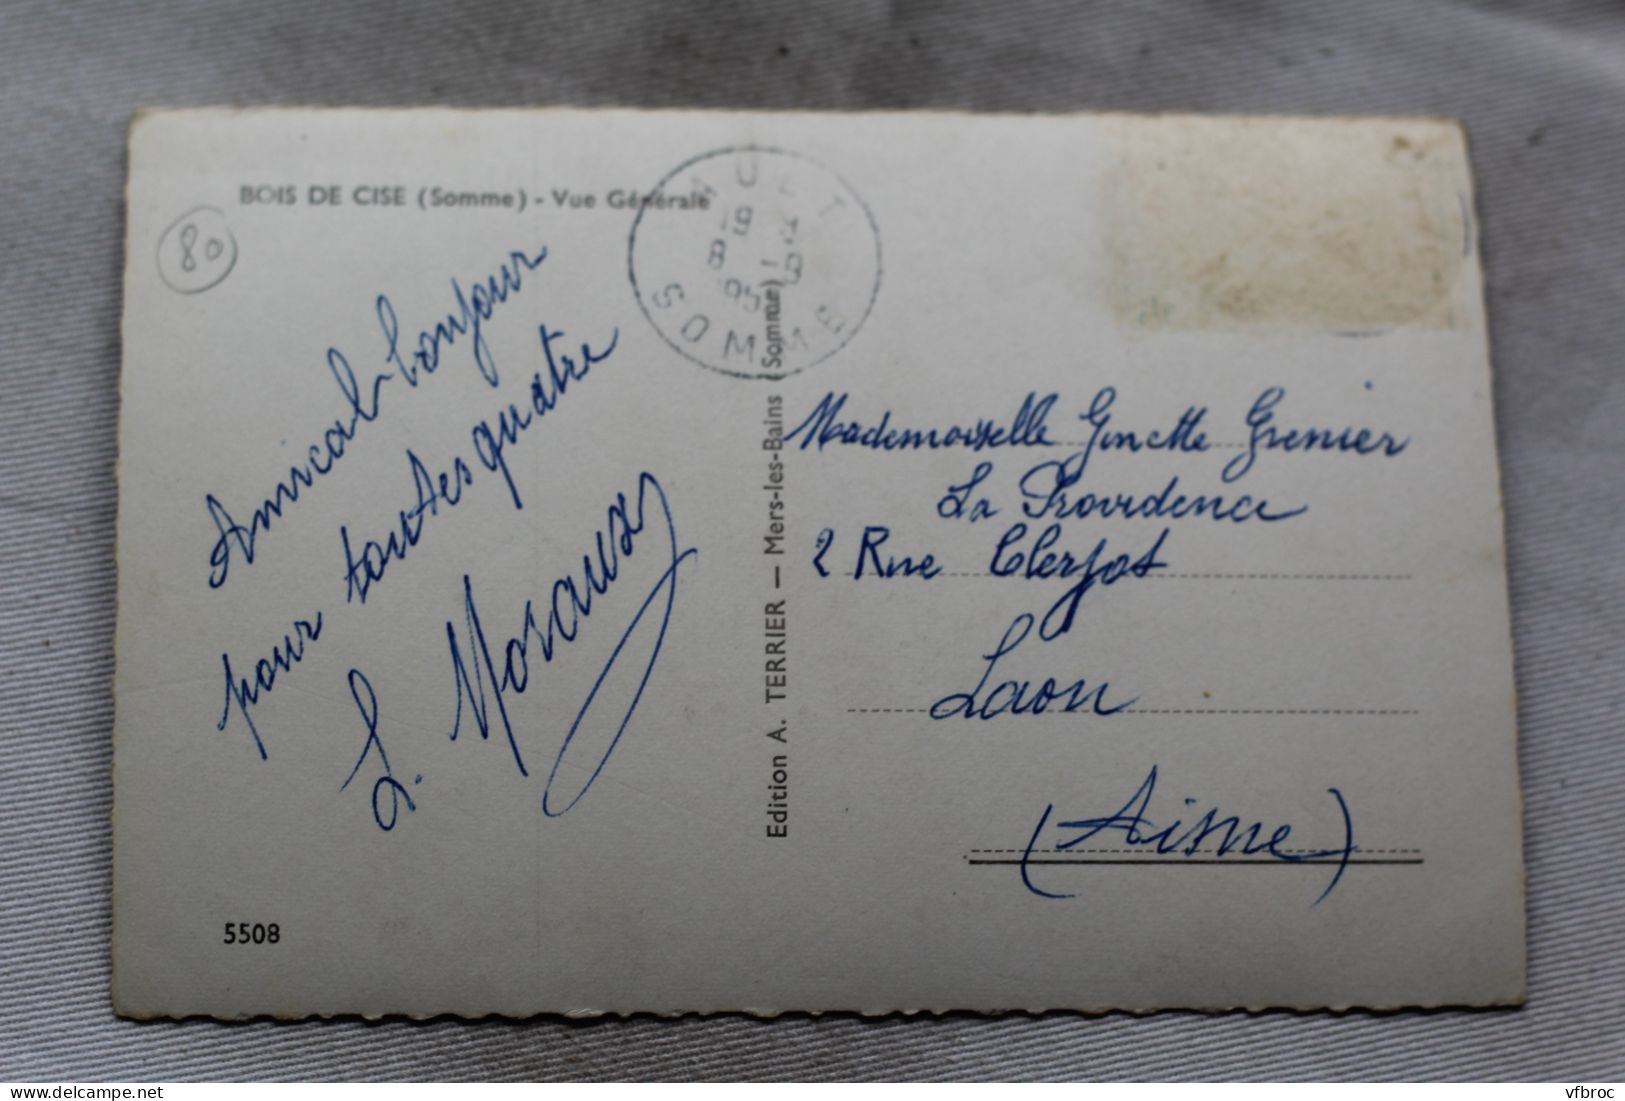 BOIS DE CISE (Somme) - Vue Générale
80
AULT
19 
8 - 8
195
SOMME
Amical bonjour
pour toutes quatre
L. Moraux
5508
Edition A. TERRIER — Mers-les-Bains (Somme)
Mademoiselle Ginette Grenier
La Providence
2 Rue Clerjot
Laon
(Aisne)
vfbroc